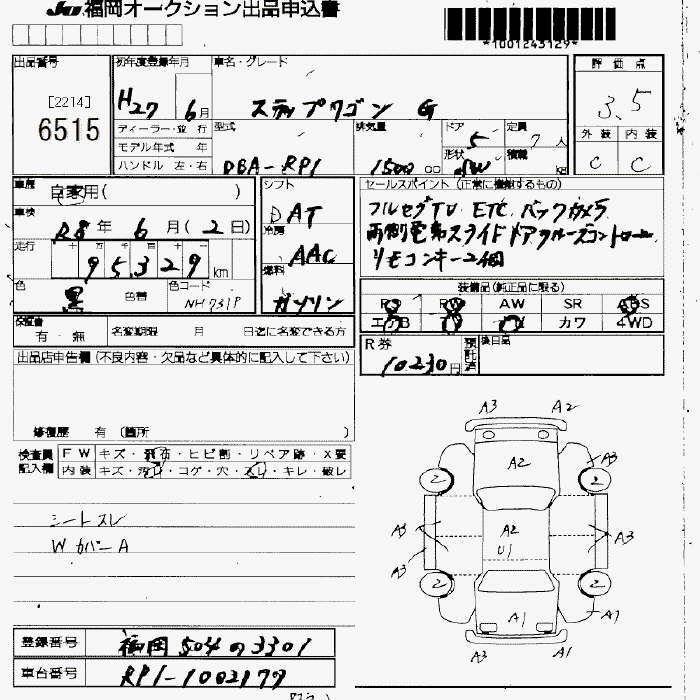 JU福岡オークション出品申込書
*1001243129*
出品番号
[2214]
6515
初年度登録年月
H27 6月
ディーラー・並 行
モデル年式 年
ハンドル 左・右
車名・グレード
ステップワゴン G
型式
DBA-RP1
排気量
1500 cc
ドア
5
定員
7 人
形状
積載
評 価 点
3.5
外 装 内 装
C C
車歴
自家用( )
車検
R8年 6月(2日)
走行
十 万 千 百 十 一
95329 km
色
黒
色替
色コード
NH731P
シフト
DAT
冷房
AAC
燃料
ガソリン
セールスポイント (正常に機能するもの)
フルセグTV ETC バックカメラ
両側電動スライドドア クルーズコントロール
リモコンキー2個
装備品(純正品に限る)
PS PW AW SR ABS
エアB カワ 4WD
保証書
有 ・ 無
名変期限 月 日迄に名変できる方
R券
10,230円
預託済
後日品
出品店申告欄(不良内容・欠品など具体的に記入して下さい)
修復歴 有 (箇所 )
検査員
記入欄
FW キズ・飛石・ヒビ割・リペア跡・X要
内装 キズ・汚れ・コゲ・穴・スレ・キレ・破レ
シートスレ
WカバーA
A3 A2
A2
A3
2 2
A3 A2 A3
U1
A3
2 2
A1 A1
A3 A1
登録番号
福岡 504 の 3301
車台番号
RP1-1002177